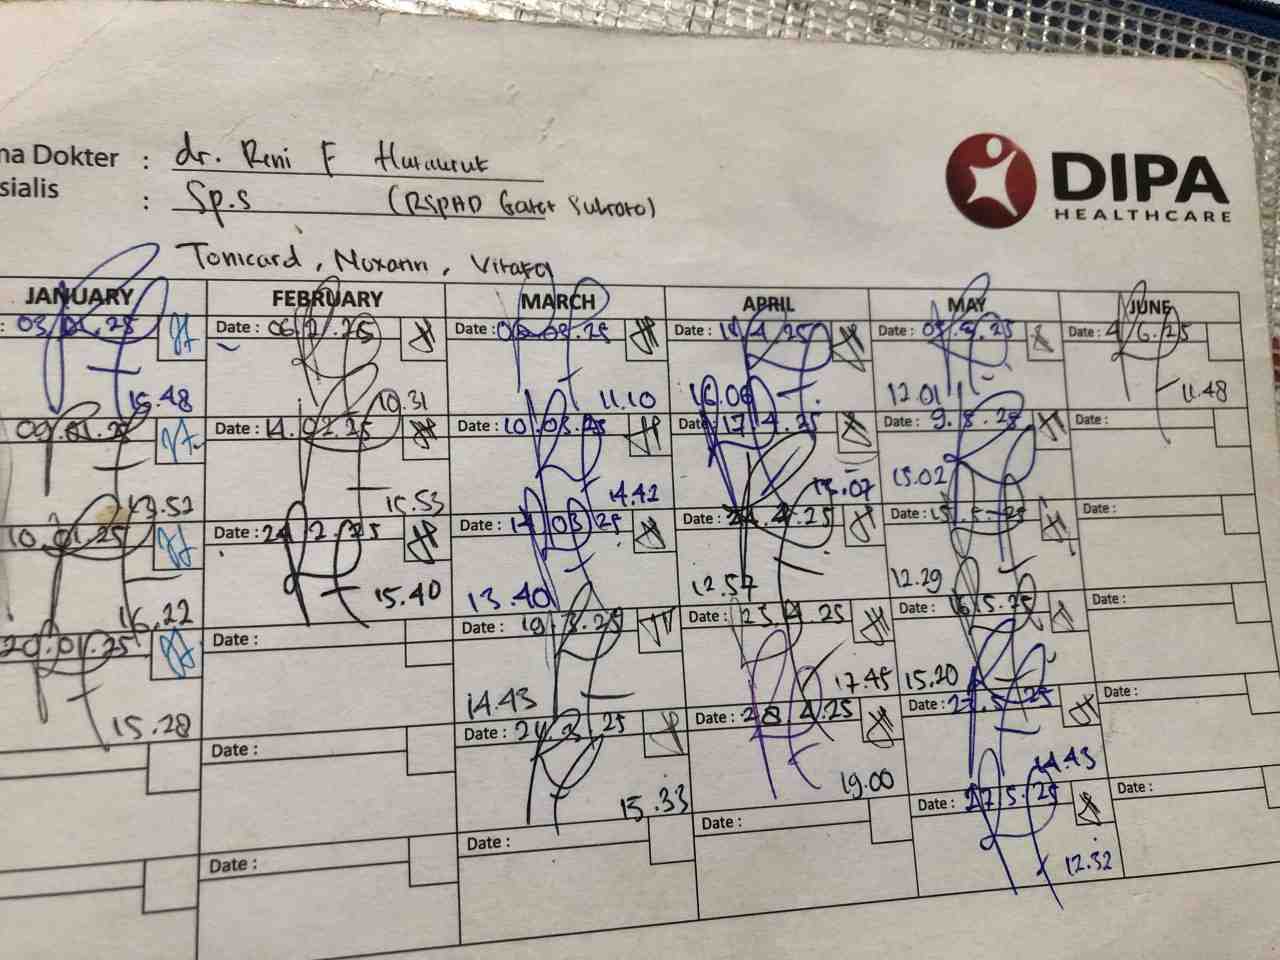 na Dokter : dr. Reni F Hutauruk
sialis : Sp.S (RSPAD Gatot Subroto)
DIPA
HEALTHCARE
Tonicard, Noxann,
JANUARY FEBRUARY MARCH APRIL MAY JUNE
: 03.01.25 Date : 06.2.25 Date : 03.25 Date : 4.25 Date : 25 Date : 4.6.25
15.48 10.31 11.10 16.06 12.01 11.48
09.01.25 Date : 14.02.25 Date : 10.03.25 Date : 17.4.25 Date : 9.5.25 Date :
13.52 15.53 14.42 15.07 15.02
10.01.25 Date : 24.2.25 Date : 03.25 Date : 4.25 Date : 15.5.25 Date :
16.22 15.40 13.40 12.57 12.29
20.01.25 Date : Date : 19.3.25 Date : 4.25 Date : 16.5.25 Date :
15.28 14.43 17.45 15.20
Date : Date : 3.25 Date : 28.4.25 Date : 5.25 Date :
15.33 19.00 14.43
Date : Date : Date : Date : 27.5.25 Date :
12.32